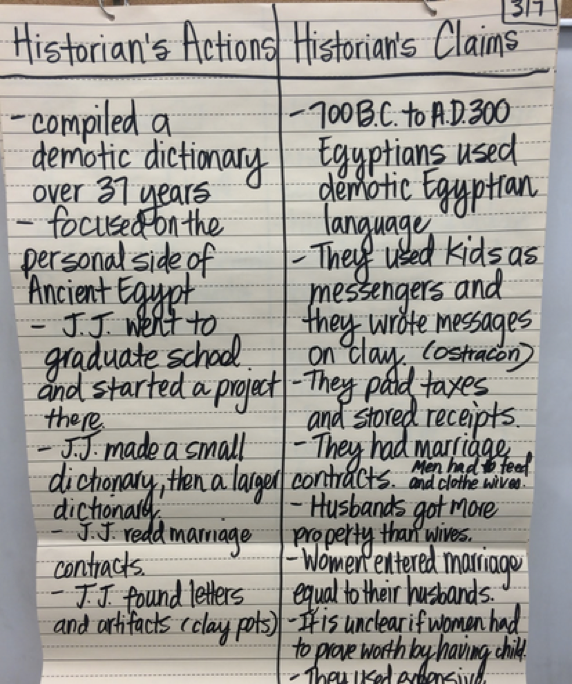 3/7
Historian's Actions
- compiled a
demotic dictionary
over 37 years
- focused on the
personal side of
Ancient Egypt
- J.J. went to
graduate school
and started a project
there.
- J.J. made a small
dictionary, then a larger
dictionary.
- J.J. read marriage
contracts.
- J.J. found letters
and artifacts (clay pots)
Historian's Claims
- 700 B.C. to A.D. 300
Egyptians used
demotic Egyptian
language
- They used kids as
messengers and
they wrote messages
on clay. (ostracon)
- They paid taxes
and stored receipts.
- They had marriage
contracts. Men had to feed
and clothe wives.
- Husbands got more
property than wives.
- Women entered marriage
equal to their husbands.
- It is unclear if women had
to prove worth by having child.
- They used expensive